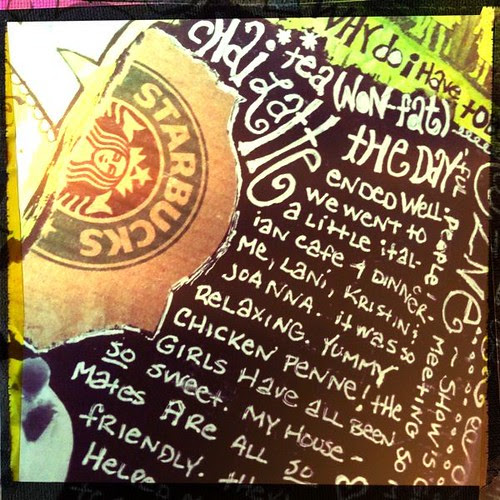 STARBUCKS
WHY do i HAVE to
Chai **
tea (NON-fat)
Latte
the DAY
ENDED WELL-
WE WENT to
A little ital-
ian cafe 4 DINNER-
ME, LANI, KRISTIN;
JOANNA. it WAS SO
RELAXING. YUMMY
CHICKEN PENNE! tHE
GIRLS HAVE ALL BEEN
SO SWEET. MY HOUSE-
MATES ARE ALL SO
FRIENDLY.
HELPE
PEOPLE
MEETING SO
SHOW IS